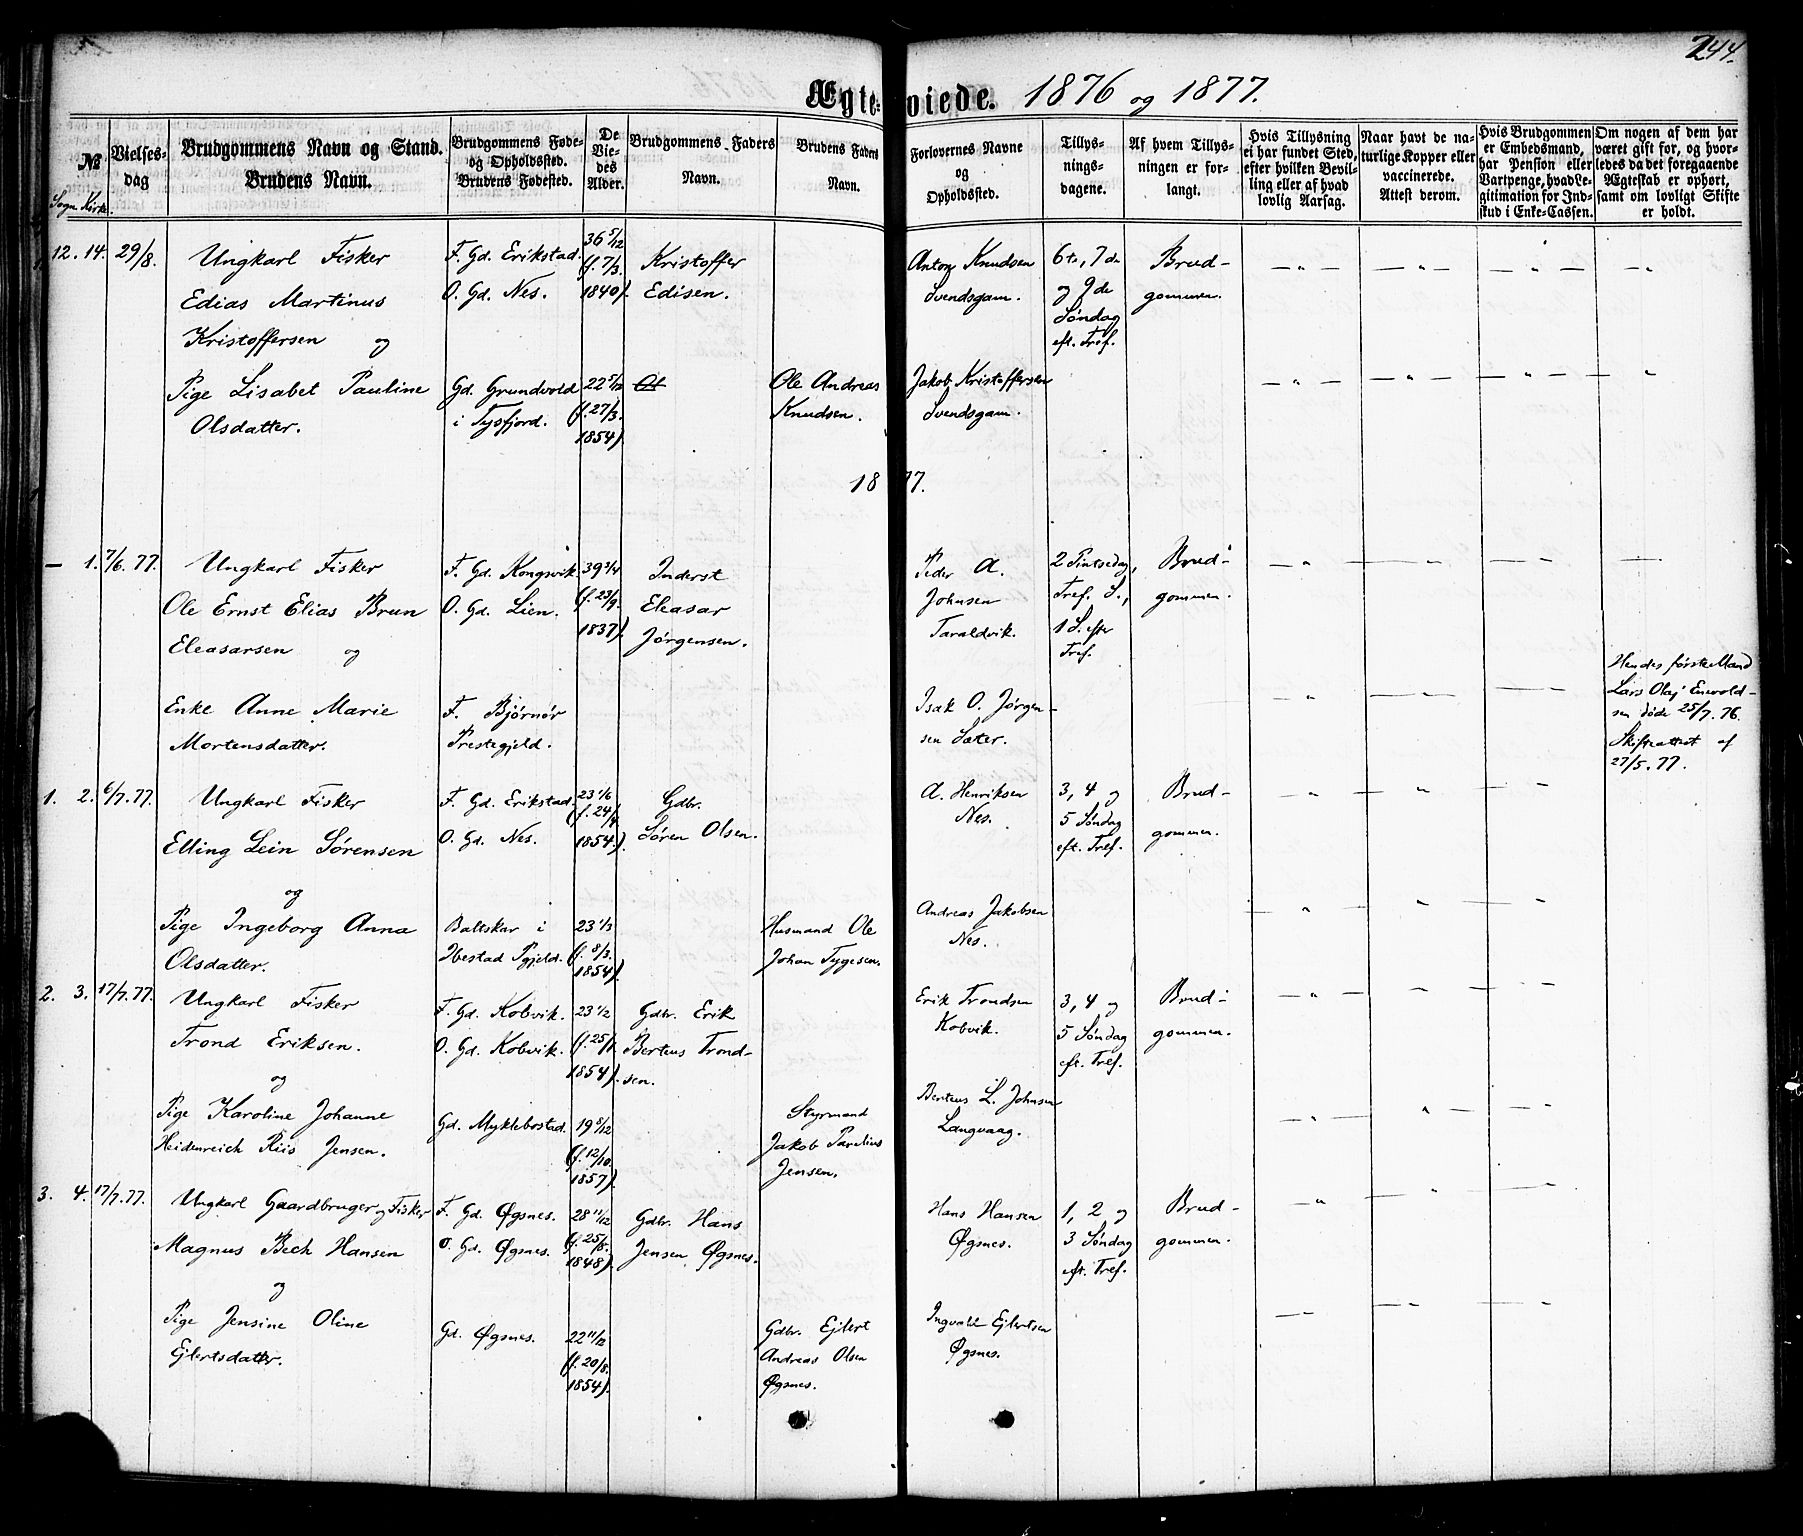 244.
Ægteviede. 1876 og 1877.
№
Sogn. Kirke.
Vielses-
dag
Brudgommens Navn og Stand.
Brudens Navn.
Brudgommens Føde-
og Opholdssted.
Brudens Fødested.
De
Vie-
des
Alder.
Brudgommens Faders
Navn.
Brudens Faders
Navn.
Forlovernes Navne
og
Opholdssted.
Tillys-
nings-
dagene.
Af hvem Tillys-
ningen er for-
langt.
Hvis Tillysning
ei har fundet Sted,
efter hvilken Bevil-
ling eller af hvad
lovlig Aarsag.
Naar havt de na-
turlige Kopper eller
vaccinerede.
Attest derom.
Hvis Brudgommen
er Embedsmand,
har Pension eller
Vartpenge, hvad Le-
gitimation for Ind-
skud i Enke-Cassen.
Om nogen af dem har
været gift før, og hvor-
ledes da det foregaaende
Ægteskab er ophørt,
samt om lovligt Skifte
er holdt.
12. 14. 29/8.
Ungkarl Fisker
Edias Martinus
Kristoffersen og
F. Gd. Erikstad.
O. Gd. Nes.
36 5/12
(f. 7/3.
1840).
Kristoffer
Edisen.
Anton Knudsen
Svendsgam.
6te, 7de
og 9de
Søndag
eft. Tref.
Brud-
gommen.
Pige Lisabet Pauline
Olsdatter.
Gd. Grundvold
i Tysfjord.
22 5/12
(f. 27/3.
1854)
Ole Andreas
Knudsen.
Jakob Kristoffersen
Svendsgam.
1877.
— 1. 7/6. 77.
Ungkarl Fisker
Ole Ernst Elias Brun
Eleasarsen og
F. Gd. Kongsvik.
O. Gd. Lien.
39 3/4
(f. 23/9.
1837).
Inderst
Eleasar
Jørgensen.
Peder A.
Johnsen
Taraldvik.
2 Pintsedag,
Tref. S.,
1 S. efter
Tref.
Brud-
gommen.
Enke Anne Marie
Mortensdatter.
F. Bjørnør
Prestegjeld.
Isak O. Jørgen-
sen Sæter.
Hendes første Mand
Lars Olaj Enevold-
sen døde 25/7. 76.
Skifteattest af
27/5. 77.
1. 2. 6/7. 77.
Ungkarl Fisker
Elling Lein Sørensen
og
F. Gd. Erikstad.
O. Gd. Nes.
23 1/6
(f. 24/4
1854).
Gdbr.
Søren Olsen.
A. Henriksen
Nes.
3, 4 og
5 Søndag
eft. Tref.
Brud-
gommen.
Pige Ingeborg Anna
Olsdatter.
Baltskar i
Ibestad Pgjeld.
23 1/3
(f. 8/3.
1854)
Husmand Ole
Johan Tygesen.
Andreas Jakobsen
Nes.
2. 3. 17/7. 77.
Ungkarl Fisker
Trond Eriksen.
og
F. Gd. Kobvik.
O. Gd. Kobvik.
23 1/2
(f. 25/1
1854).
Gdbr. Erik
Berteus Trond-
sen.
Erik Trondsen
Kobvik.
3, 4 og
5 Søndag
eft. Tref.
Brud-
gommen.
Pige Karoline Johanne
Heidenreich Riis Jensen.
Gd. Myklebostad.
19 8/12
(f. 12/10.
1857)
Styrmand
Jakob Paulius
Jensen.
Berteus L. Johnsen
Langvaag.
3. 4. 17/7. 77.
Ungkarl Gaardbruger og Fisker
Magnus Bech Hansen
og
F. Gd. Øgsnes.
O. Gd. Øgsnes.
28 11/12
(f. 25/8.
1848).
Gdbr. Hans
Jensen Øgsnes.
Hans Hansen
Øgsnes.
1, 2 og
3 Søndag
eft. Tref.
Brud-
gommen.
Pige Jensine Oline
Ejlertsdatter.
Gd. Øgsnes.
22 11/12
(f. 20/8.
1854).
Gdbr. Ejlert
Andreas Olsen
Øgsnes.
Ingvald Ejlertsen
Øgsnes.